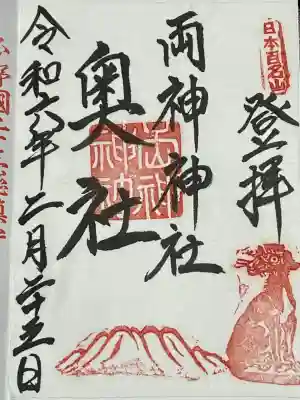 日本百名山
登拝
両神神社
奥社
令和六年二月二十五日